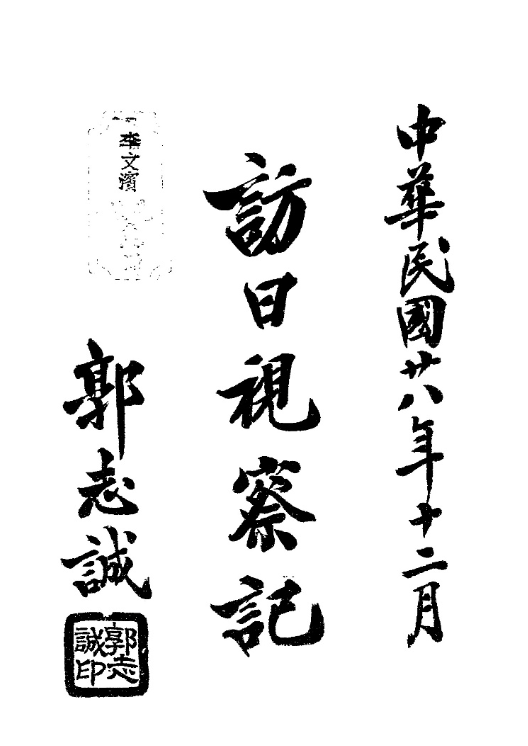 中華民國廿八年十二月
訪日視察記
李文濱
郭志誠
郭志誠印